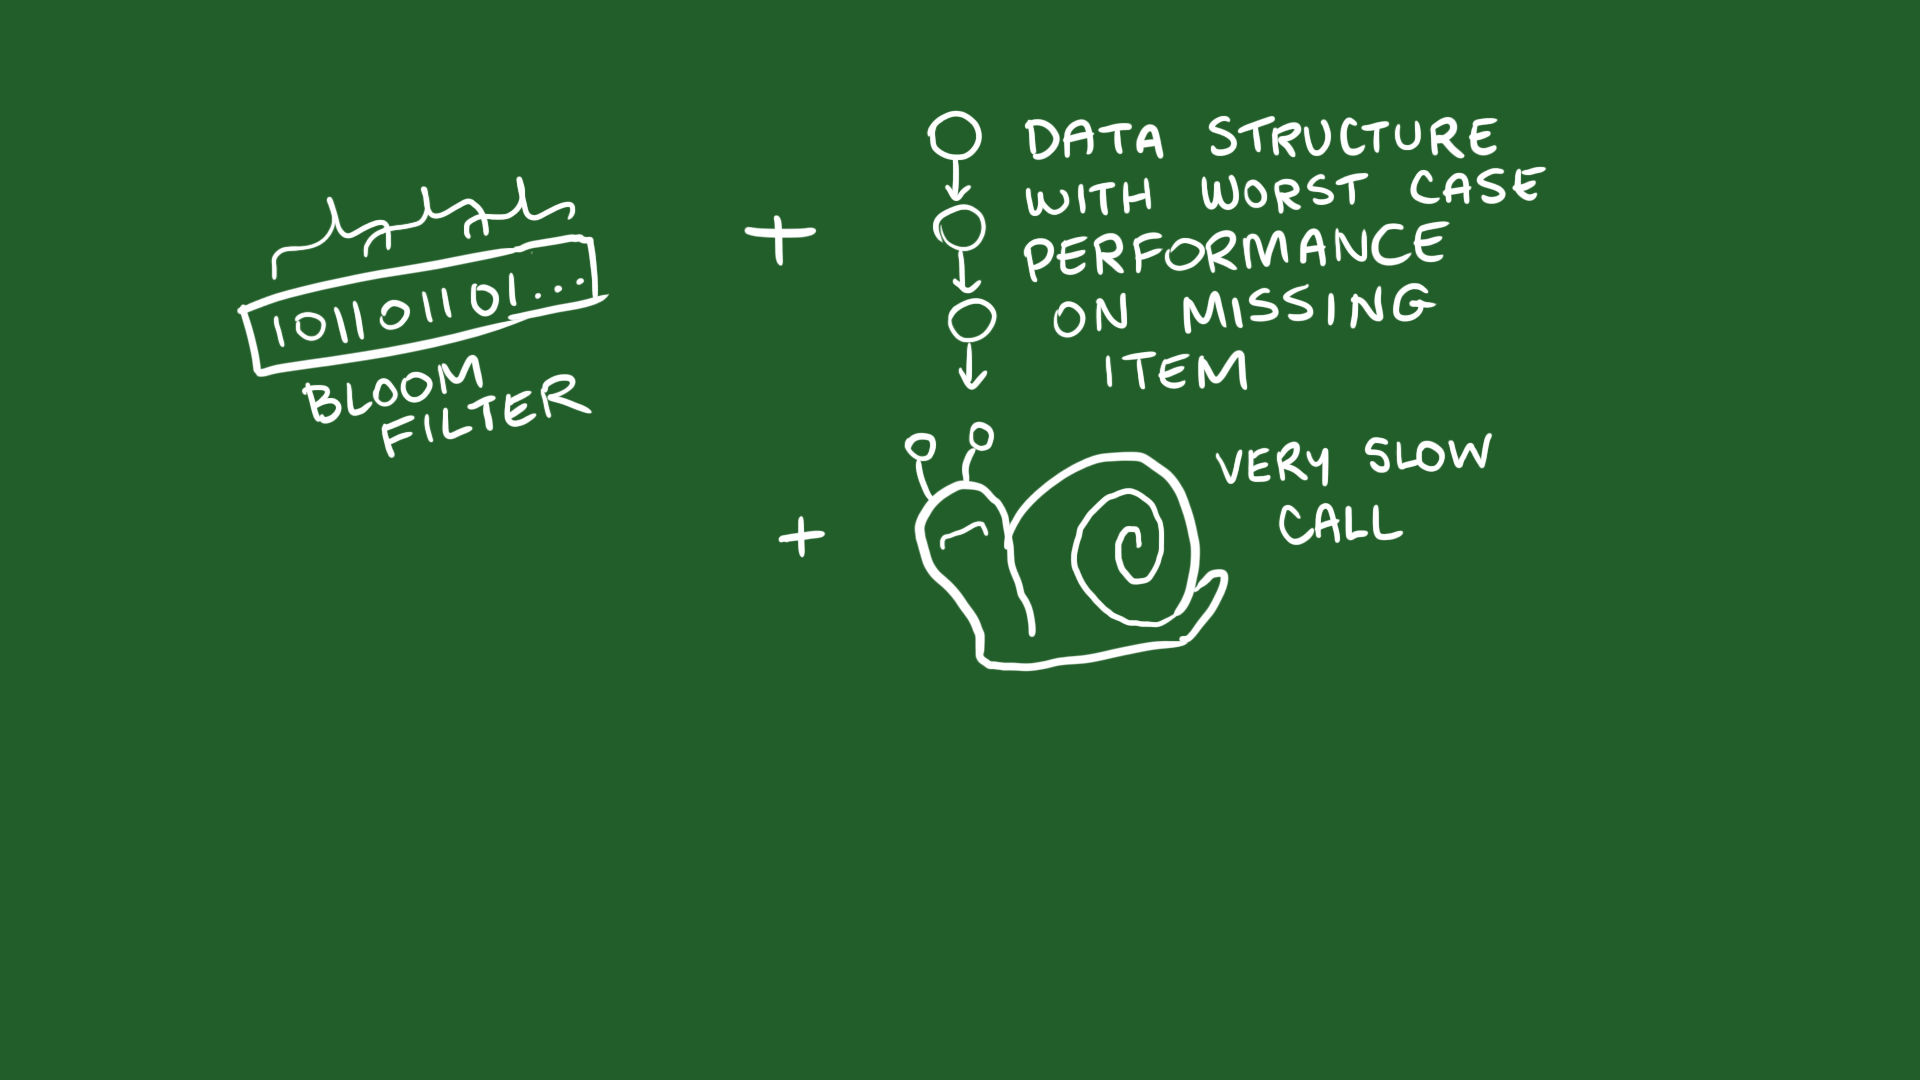 1011011101...
BLOOM
FILTER
+
DATA STRUCTURE
WITH WORST CASE
PERFORMANCE
ON MISSING
ITEM
+
VERY SLOW
CALL